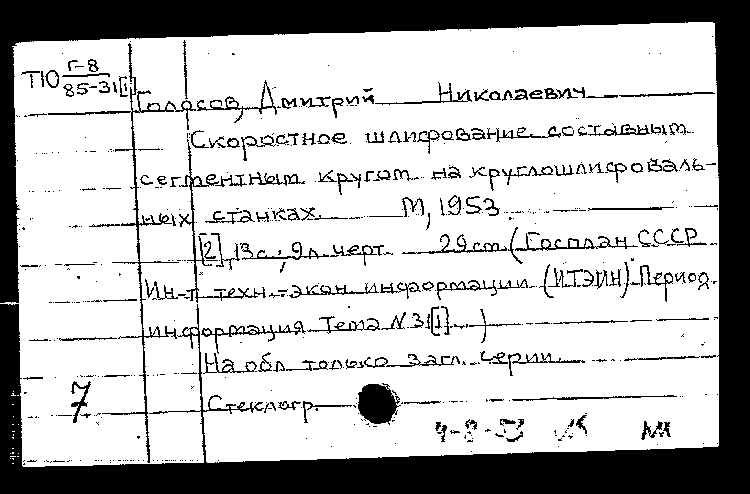 Т10 Г-8
85-31[1]
Голосов, Дмитрий Николаевич
Скоростное шлифование составным
сегментным кругом на круглошлифоваль-
ных станках. М, 1953.
[2], 13с.; 9л. черт. 29см (Госплан СССР
Ин-т техн.-экон. информации (ИТЭИН). Период.
информация Тема N 31[1]. )
На обл. только загл. серии.
7 Стеклогр.
4-8-53